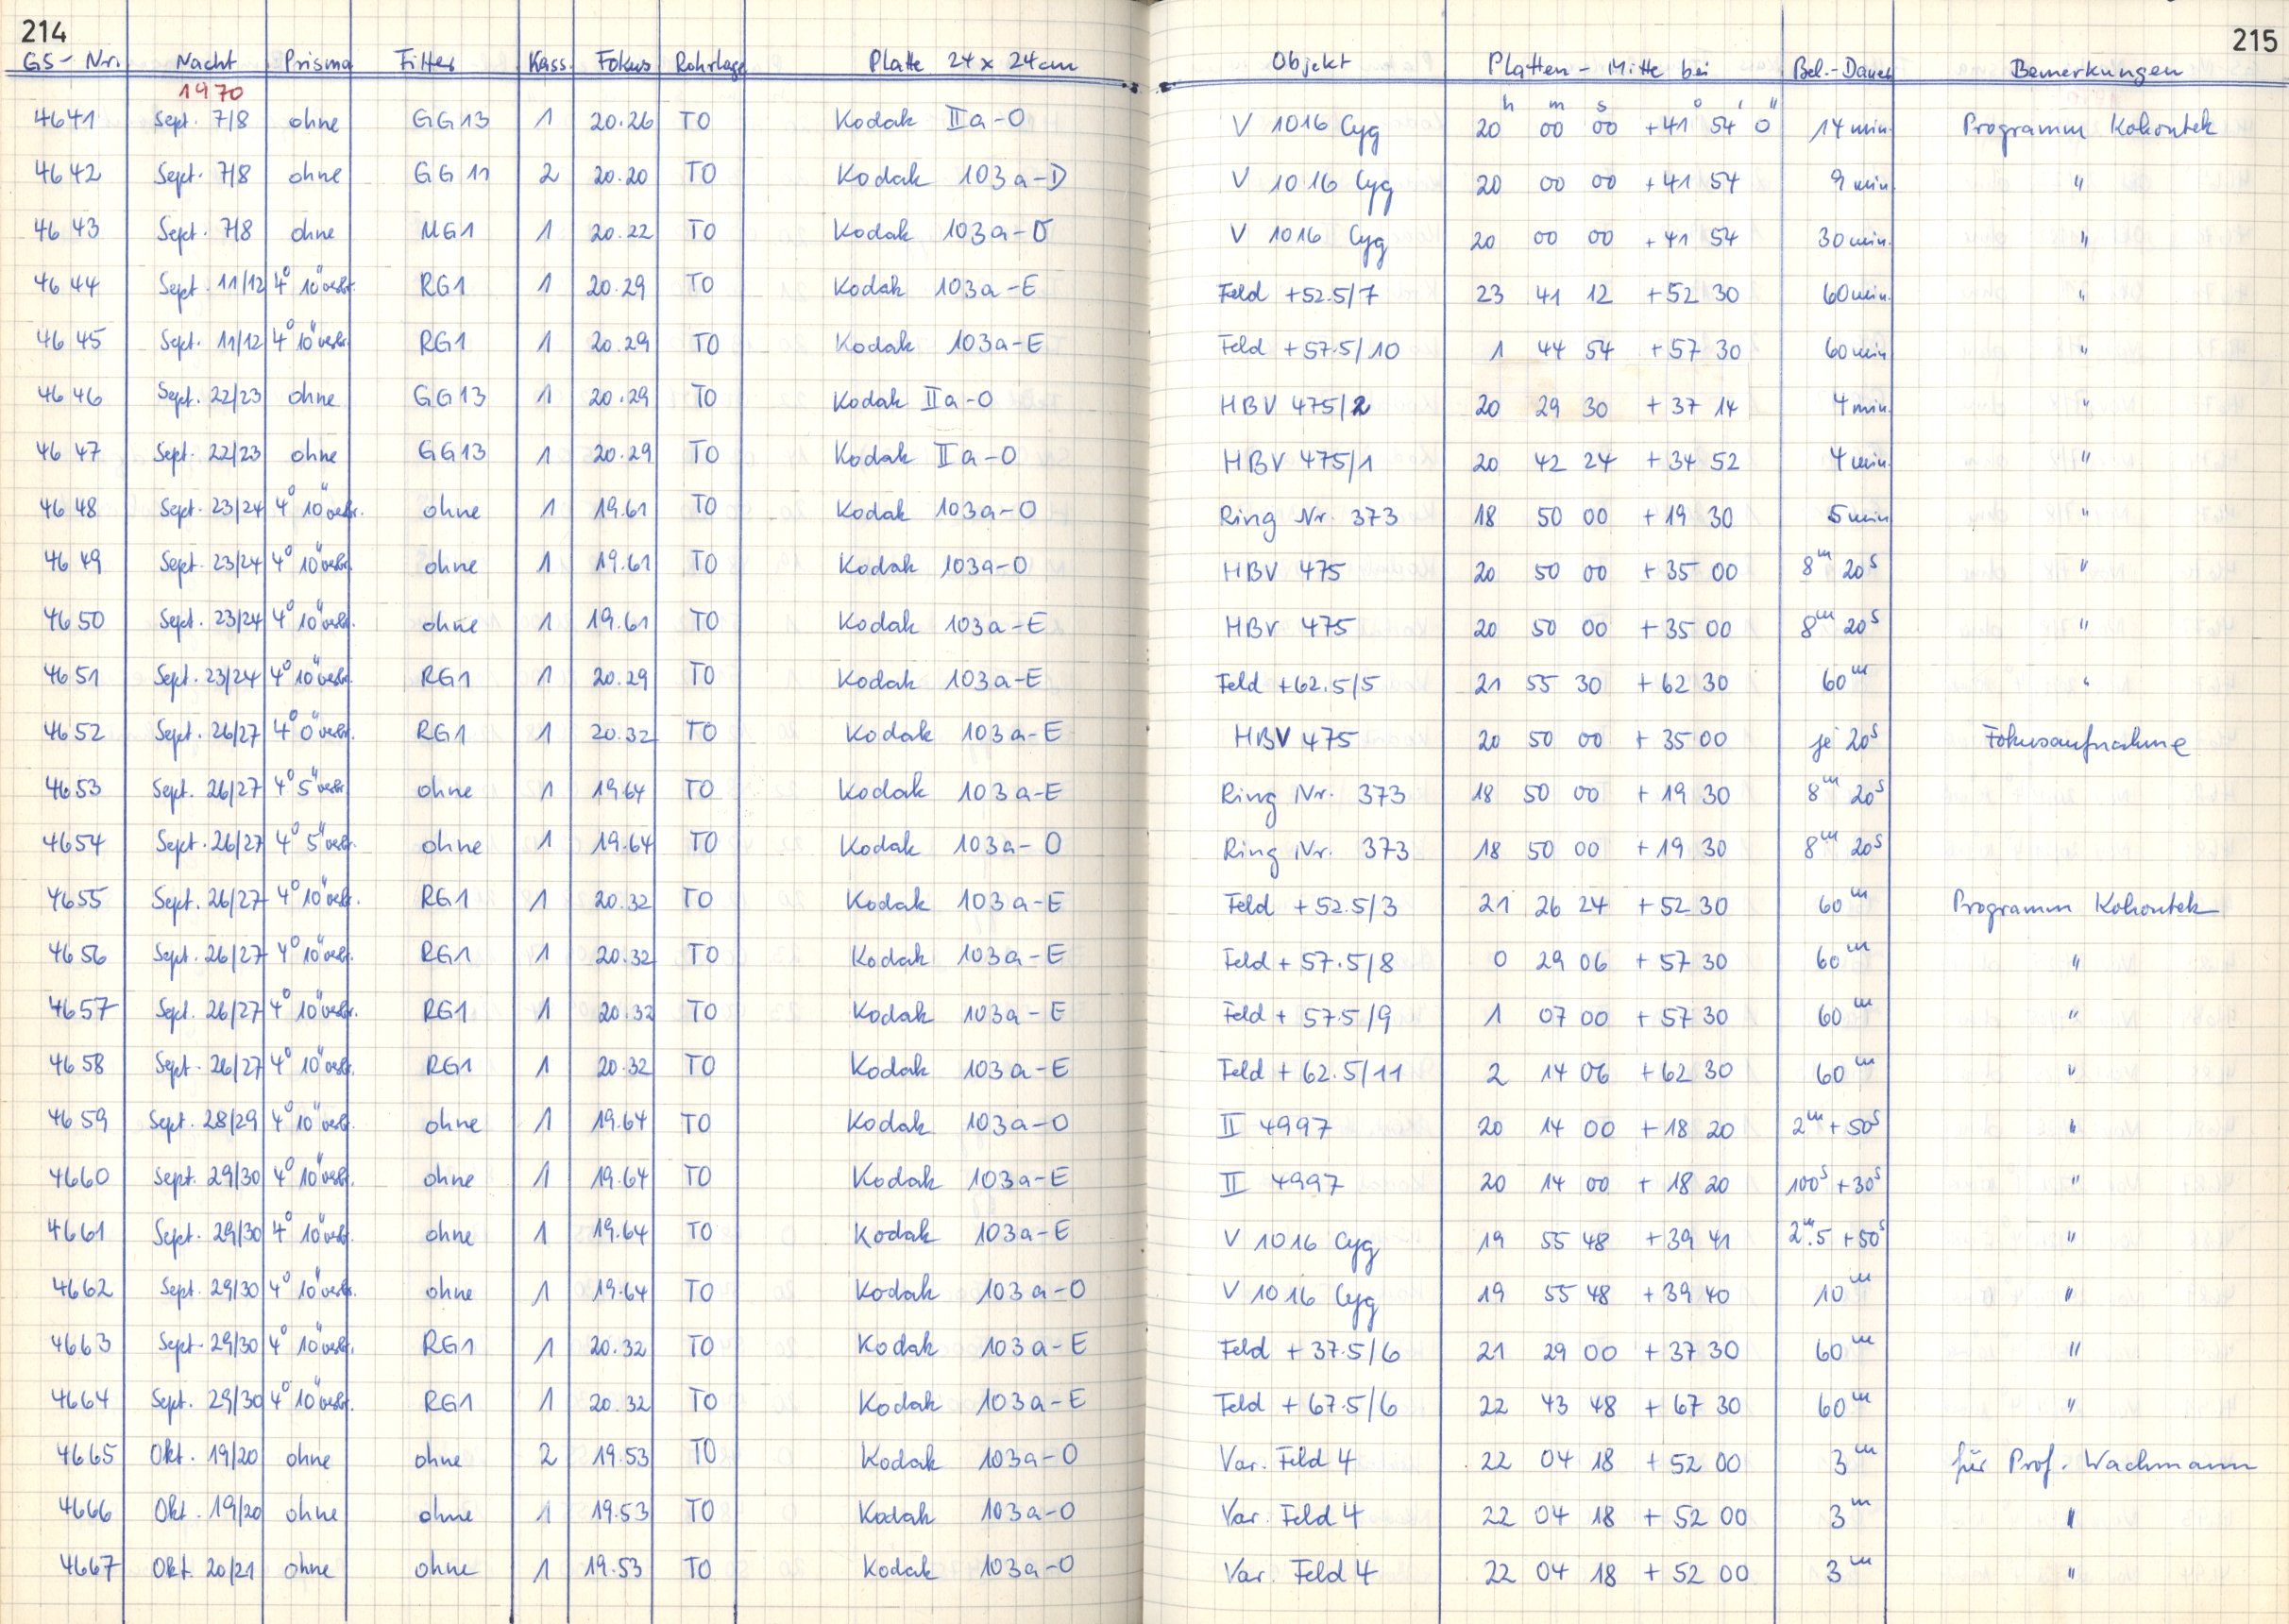 214
215
GS-Nr. Nacht Prisma Filter Kass. Fokus Rohrlage Platte 24 x 24 cm Objekt Platten-Mitte bei Bel.-Dauer Bemerkungen
1970
h m s ° ' "
4641 Sept. 7/8 ohne GG13 1 20.26 TO Kodak IIa-O V 1016 Cyg 20 00 00 +41 54 0 14 min. Programm Kohoutek
4642 Sept. 7/8 ohne GG11 2 20.20 TO Kodak 103a-D V 1016 Cyg 20 00 00 +41 54 9 min "
4643 Sept. 7/8 ohne UG1 1 20.22 TO Kodak 103a-O V 1016 Cyg 20 00 00 +41 54 30 min. "
4644 Sept. 11/12 4° 10" verbr. RG1 1 20.29 TO Kodak 103a-E Feld +52.5/7 23 41 12 +52 30 60 min. "
4645 Sept. 11/12 4° 10" verbr. RG1 1 20.29 TO Kodak 103a-E Feld +57.5/10 1 44 54 +57 30 60 min "
4646 Sept. 22/23 ohne GG13 1 20.29 TO Kodak IIa-O HBV 475/2 20 29 30 +37 14 4 min. "
4647 Sept. 22/23 ohne GG13 1 20.29 TO Kodak IIa-O HBV 475/1 20 42 24 +34 52 4 min. "
4648 Sept. 23/24 4° 10" verbr. ohne 1 19.61 TO Kodak 103a-O Ring Nr. 373 18 50 00 +19 30 5 min "
4649 Sept. 23/24 4° 10" verbr. ohne 1 19.61 TO Kodak 103a-O HBV 475 20 50 00 +35 00 8m 20s "
4650 Sept. 23/24 4° 10" verbr. ohne 1 19.61 TO Kodak 103a-E HBV 475 20 50 00 +35 00 8m 20s "
4651 Sept. 23/24 4° 10" verbr. RG1 1 20.29 TO Kodak 103a-E Feld +62.5/5 21 55 30 +62 30 60m "
4652 Sept. 26/27 4° 0" verbr. RG1 1 20.32 TO Kodak 103a-E HBV 475 20 50 00 +35 00 je 20s Fokusaufnahme
4653 Sept. 26/27 4° 5" verbr. ohne 1 19.64 TO Kodak 103a-E Ring Nr. 373 18 50 00 +19 30 8m 20s
4654 Sept. 26/27 4° 5" verbr. ohne 1 19.64 TO Kodak 103a-O Ring Nr. 373 18 50 00 +19 30 8m 20s
4655 Sept. 26/27 4° 10" verbr. RG1 1 20.32 TO Kodak 103a-E Feld +52.5/3 21 26 24 +52 30 60m Programm Kohoutek
4656 Sept. 26/27 4° 10" verbr. RG1 1 20.32 TO Kodak 103a-E Feld +57.5/8 0 29 06 +57 30 60m "
4657 Sept. 26/27 4° 10" verbr. RG1 1 20.32 TO Kodak 103a-E Feld +57.5/9 1 07 00 +57 30 60m "
4658 Sept. 26/27 4° 10" verbr. RG1 1 20.32 TO Kodak 103a-E Feld +62.5/11 2 14 06 +62 30 60m "
4659 Sept. 28/29 4° 10" verbr. ohne 1 19.64 TO Kodak 103a-O II 4997 20 14 00 +18 20 2m + 50s "
4660 Sept. 29/30 4° 10" verbr. ohne 1 19.64 TO Kodak 103a-E II 4997 20 14 00 +18 20 100s + 30s "
4661 Sept. 29/30 4° 10" verbr. ohne 1 19.64 TO Kodak 103a-E V 1016 Cyg 19 55 48 +39 41 2m.5 + 50s "
4662 Sept. 29/30 4° 10" verbr. ohne 1 19.64 TO Kodak 103a-O V 1016 Cyg 19 55 48 +39 40 10m "
4663 Sept. 29/30 4° 10" verbr. RG1 1 20.32 TO Kodak 103a-E Feld +37.5/6 21 29 00 +37 30 60m "
4664 Sept. 29/30 4° 10" verbr. RG1 1 20.32 TO Kodak 103a-E Feld +67.5/6 22 43 48 +67 30 60m "
4665 Okt. 19/20 ohne ohne 2 19.53 TO Kodak 103a-O Var. Feld 4 22 04 18 +52 00 3m für Prof. Wachmann
4666 Okt. 19/20 ohne ohne 1 19.53 TO Kodak 103a-O Var. Feld 4 22 04 18 +52 00 3m "
4667 Okt. 20/21 ohne ohne 1 19.53 TO Kodak 103a-O Var. Feld 4 22 04 18 +52 00 3m "